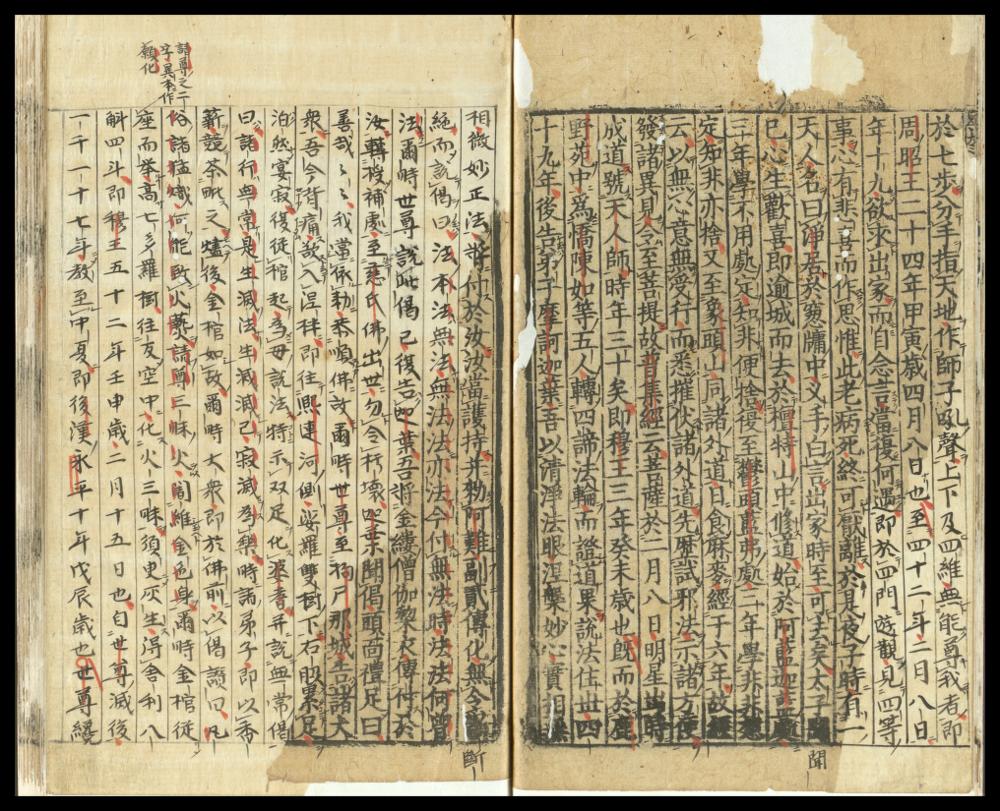 於七歩分手指天地作師子吼聲上下及四維無能尊我者即
周昭王二十四年甲寅歳四月八日也至四十二年二月八日
年十九欲求出家而自念言當復何遇即於四門遊觀見四等
事心有悲喜而作思惟此老病死終可猒離於是夜子時有一
天人名曰淨居於窓牖中叉手白言出家時至可去矣太子聞
聞
已心生歡喜即逾城而去於檀特山中修道始於阿藍迦藍處
三年學不用處定知非便捨復至鬱頭藍弗處三年學非非想
定知非亦捨又至象頭山同諸外道日食麻麥經于六年故經
云以無心意無受行而悉摧伏諸外道先歴試邪法示諸方便
發諸異見令至菩提故普集經云菩薩於二月八日明星出時
成道號天人師時年三十矣即穆王三年癸未歳也既而於鹿
野苑中為憍陳如等五人轉四諦法輪而證道果説法住世四
十九年後告弟子摩訶迦葉吾以清淨法眼涅槃妙心實相無
相微妙正法将付於汝汝當護持并勑阿難副貳傳化無令斷
斷
絶而説偈曰法本法無法無法法亦法今付無法時法法何曾
法爾時世尊説此偈已復告迦葉吾将金縷僧伽棃衣傳付於
汝轉授補處至慈氏佛出世勿令朽壞迦葉聞偈頭面禮足曰
善哉々々我當依勑恭順佛故爾時世尊至拘尸那城告諸大
衆吾今背痛欲入涅槃即往熈連河側娑羅雙樹下右脇累足
泊然宴寂復從棺起為母説法特示双足化婆耆并説無常偈
曰諸行無常是生滅法生滅滅已寂滅為樂時諸弟子即以香
薪競茶毗之燼後金棺如故爾時大衆即於佛前以偈讃曰凡
俗諸猛熾何能致火爇請尊三昧火闍維金色身爾時金棺從
請尊之二
字異本作
願化
座而举高七多羅樹往反空中化火三昧須臾灰生得舎利八
斛四斗即穆王五十二年壬申歳二月十五日也自世尊滅後
一千一十七年教至中夏即後漢永平十年戊辰歳也世尊纔